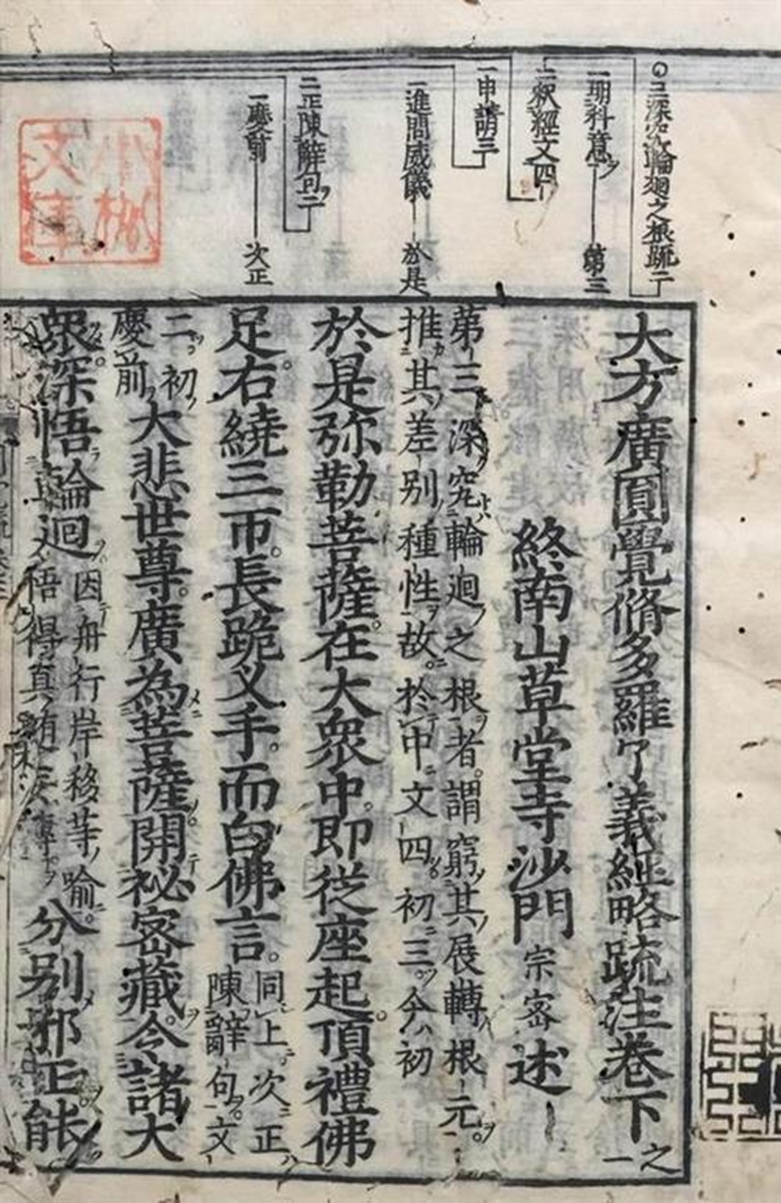 ○二深究輪廻之根疏二
一期科意 第三
二釈経文四
一申請三
一進問威儀 於是
二正陳辭句二
一慶前 次正
大方廣圓覺脩多羅了義経略疏注巻下之一
終南山草堂寺沙門宗密述
第三深究輪迴之根者謂窮其展轉根元
推其差別種性故於中文四初三今初
於是弥勒菩薩在大衆中即従座起頂禮佛
足右繞三帀長跪叉手而白佛言同上次正
陳辭句文
二初
慶前
大悲世尊廣為菩薩開祕密藏令諸大
衆深悟輪迴因舟行岸移等喻
悟得真
分別邪正能
小汀文庫